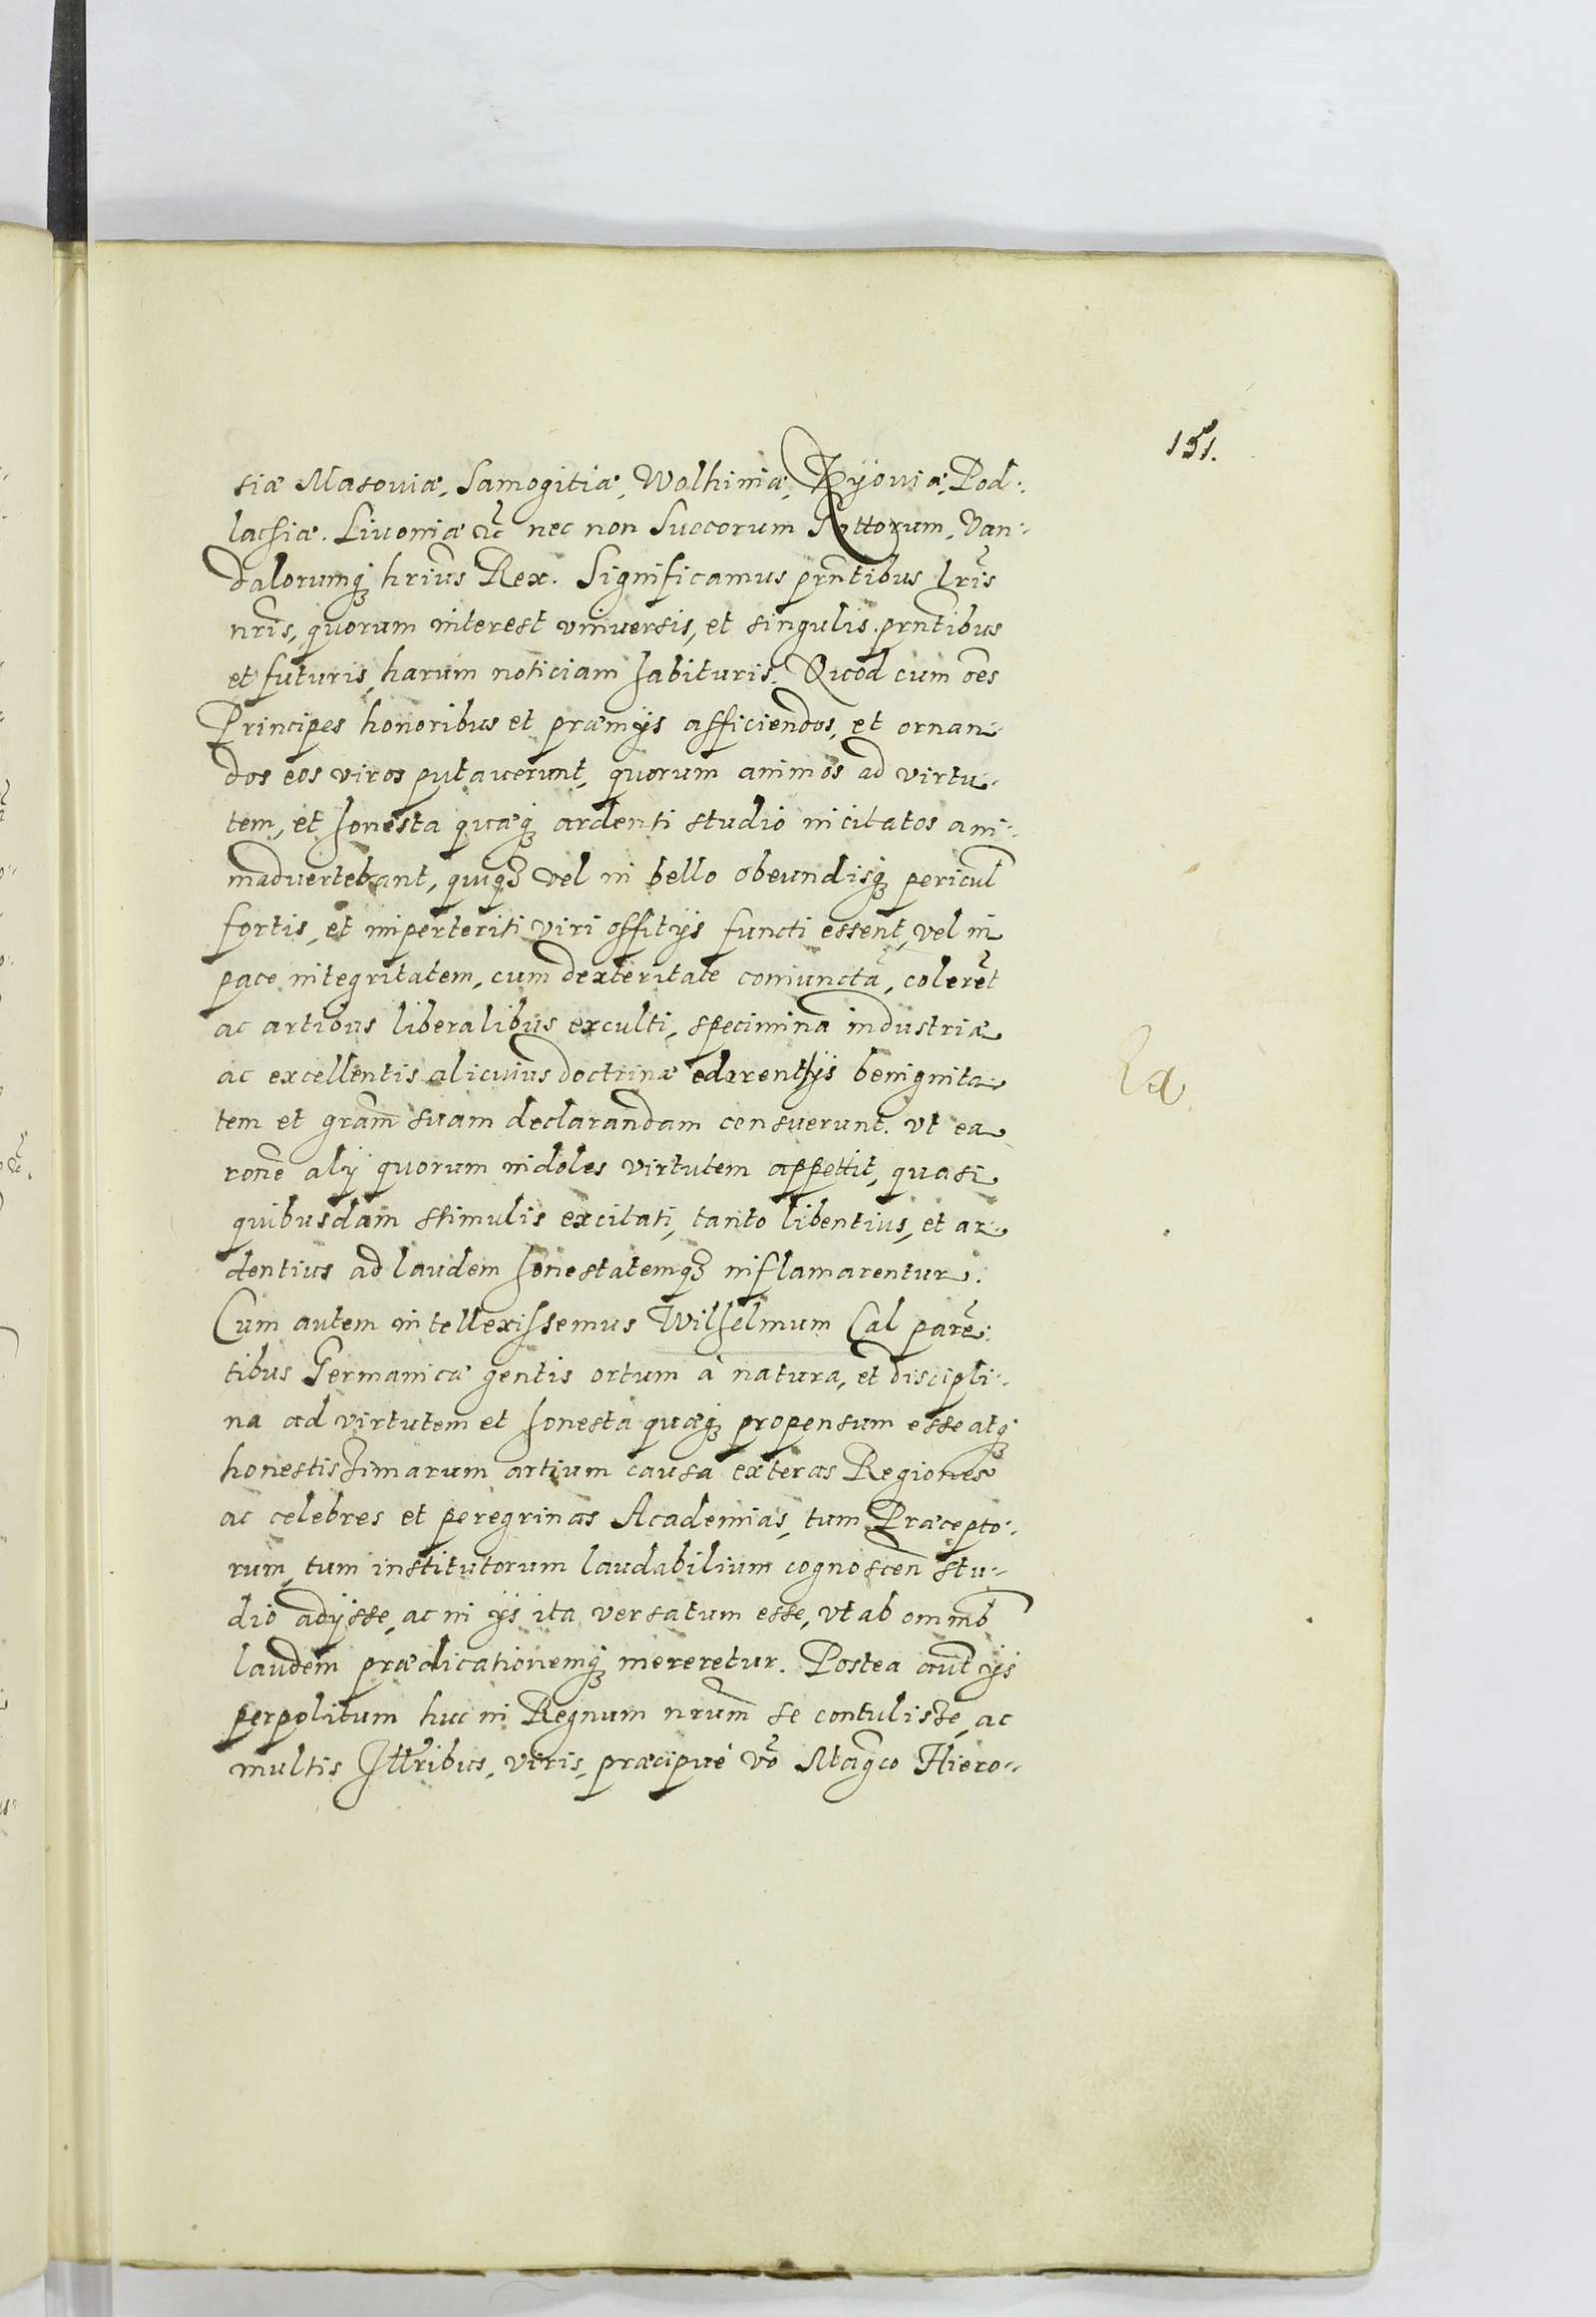 151.
siæ Masouiæ, Samogitiæ, Wolhiniæ, Kÿouiæ, Pod⸗
lachiæ. Liuoniæ ꝛc̃ nec non Suecorum Gottorum, Van⸗
dalorumq́ꝫ hrius̃ Rex. Significamus prñtibus lris̃
nris̃, quorum interest vniuersis, et singulis. prñtibus
et futuris, harum noticiam habituris. Quod cum oẽs
Principes honoribus et præmÿs afficiendos, et ornan⸗
dos eos viros putauerunt, quorum animos ad virtu⸗
tem, et honesta quæq́ꝫ ardenti studio incitatos ani⸗
maduertebant, quiqꝫ vel in bello obeundisq́ꝫ pericul̃
fortis, et imperteriti viri offitÿs functi essent, vel in
pace integritatem, cum dexteritate coniunctã, colerẽt
ac artibus liberalibus exculti, specimina industriæ
ac excellentis alicuius doctrinæ ederent, ÿs benignita⸗
tem et gram̃ suam declarandam censuerunt. vt ea
rone͂ alÿ quorum indoles virtutem appettit, quasi
quibusdam stimulis excitati, tanto libentius, et ar⸗
dentius ad laudem honestatemqꝫ inflamarentur.
Cum autem intellexissemus Wilhelmum Cal parẽ⸗
tibus Germanicæ gentis ortum à natura, et discipli⸗
na ad virtutem et honesta quæq́ꝫ propensum esse atq́ꝫ
honestissimarum artium causa exteras Regiones
ac celebres et peregrinas Academias, tum Præcepto⸗
rum, tum institutorum laudabilium cognoscen̄ stu⸗
dio adÿsse, ac in ÿs ita versatum esse, vt ab omnib̃
laudem prædicationemq́ꝫ mereretur. Postea aut̃ ÿs
perpolitum huc in Regnum nrum̃ se contulisse, ac
multis Illr̃ibus, viris, præcipuè võ Mag̃co Hiero⸗